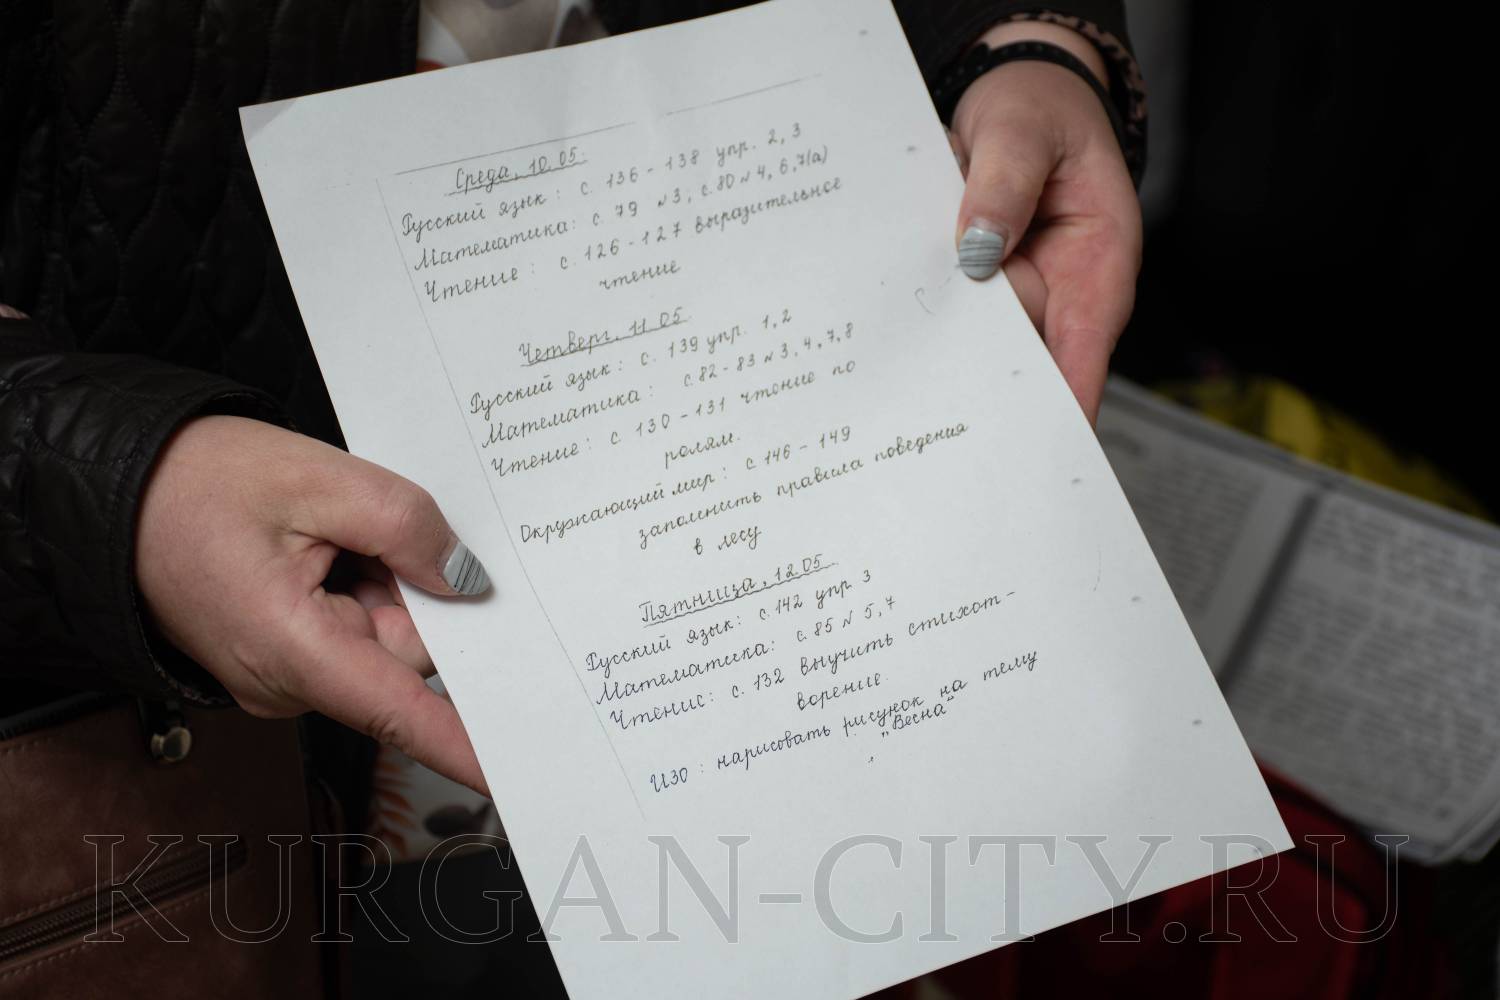 Среда, 10.05.
Русский язык: с. 136 - 138 упр. 2, 3
Математика: с. 79 №3, с.80 №4, 6,7(а)
Чтение: с. 126 - 127 выразительное
чтение
Четверг, 11.05.
Русский язык: с. 139 упр. 1,2
Математика: с.82 - 83 №3,4,7,8
Чтение: с. 130 - 131 чтение по
ролям.
Окружающий мир: с.146 - 149
заполнить правила поведения
в лесу
Пятница, 12.05
Русский язык: с.142 упр 3
Математика: с.85 № 5,7
Чтение: с. 132 выучить стихот-
ворение.
ИЗО: нарисовать рисунок на тему
"Весна"
KURGAN-CITY.RU